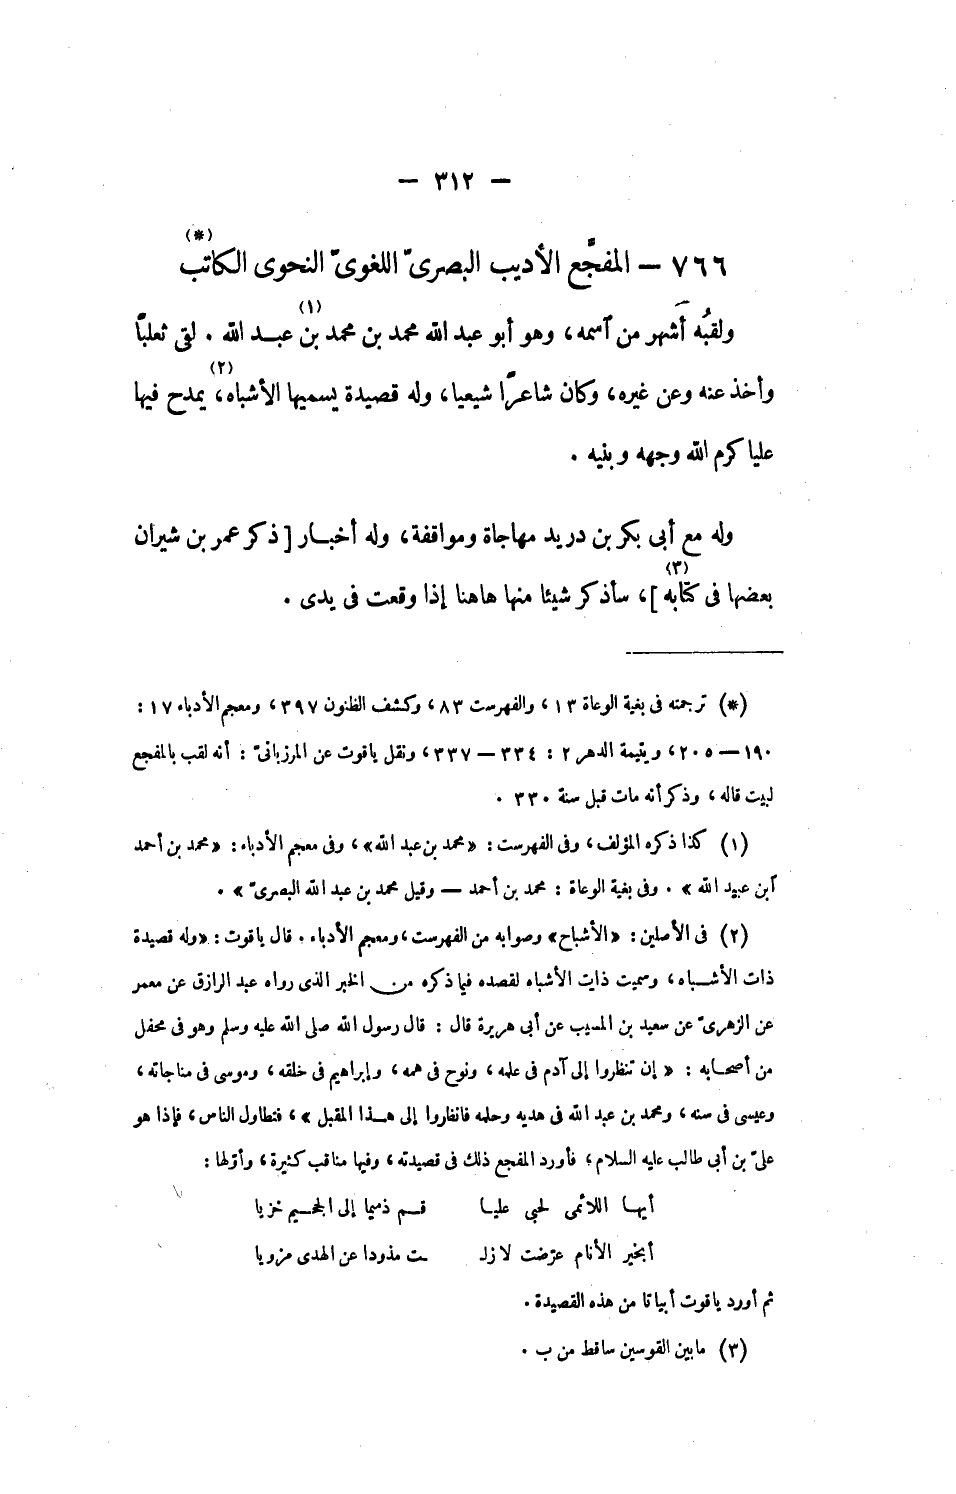 — ٣١٢ —
٧٦٦ — المفجَّع الأديب البصرىّ اللغوىّ النحوى الكاتب (*)
ولقبُه أَشهر من آسمه، وهو أبو عبد الله محمد بن محمد بن (١) عبد الله . لقى ثعلبًا
وأخذ عنه وعن غيره، وكان شاعرًا شيعيا، وله قصيدة يسميها الأشباه (٢)، يمدح فيها
عليا كرم الله وجهه وبنيه .
وله مع أبى بكر بن دريد مهاجاة ومواقفة، وله أخبار [ذكر عمر بن شيران
بعضها فى كتابه (٣)]، سأذكر شيئا منها هاهنا إذا وقعت فى يدى .
(*) ترجمته فى بغية الوعاة ١٣، والفهرست ٨٣، وكشف الظنون ٣٩٧، ومعجم الأدباء ١٧ :
١٩٠ — ٢٠٥، ويتيمة الدهر ٢ : ٣٣٤ — ٣٣٧، ونقل ياقوت عن المرزبانىّ : أنه لقب بالمفجع
لبيت قاله، وذكر أنه مات قبل سنة ٣٣٠ .
(١) كذا ذكره المؤلف، وفى الفهرست : «محمد بن عبد الله»، وفى معجم الأدباء : «محمد بن أحمد
آبن عبيد الله» . وفى بغية الوعاة : محمد بن أحمد — وقيل محمد بن عبد الله البصرىّ» .
(٢) فى الأصلين : «الأشباح» وصوابه من الفهرست، ومعجم الأدباء . قال ياقوت : «وله قصيدة
ذات الأشباه، وسميت ذات الأشباه لقصده فيما ذكره من الخبر الذى رواه عبد الرازق عن معمر
عن الزهرىّ عن سعيد بن المسيب عن أبى هريرة قال : قال رسول الله صلى الله عليه وسلم وهو فى محفل
من أصحابه : «إن تنظروا إلى آدم فى علمه، ونوح فى همه، وإبراهيم فى خلقه، وموسى فى مناجاته،
وعيسى فى سنه، ومحمد بن عبد الله فى هديه وحلمه فانظروا إلى هذا المقبل»، فتطاول الناس، فإذا هو
علىّ بن أبى طالب عليه السلام؛ فأورد المفجع ذلك فى قصيدته، وفيها مناقب كثيرة، وأوّلها :
أيها اللائمى لحبى عليا قم ذميما إلى الجحيم خزيا
أبخير الأنام عرّضت لا زلـ ـت مذودا عن الهدى مزويا
ثم أورد ياقوت أبياتا من هذه القصيدة .
(٣) مابين القوسين ساقط من ب .